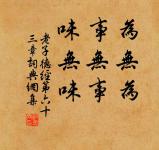 為無為
事無事
味無味
老子德經第六十
三章詞典網集